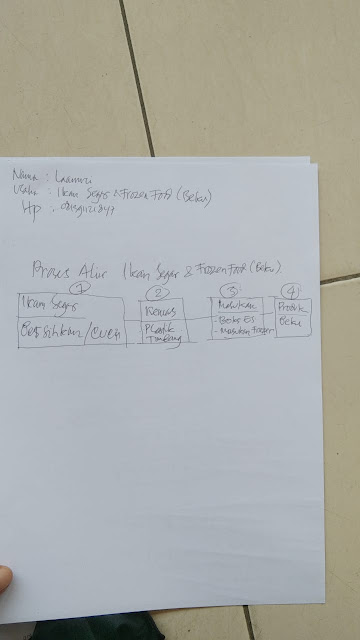 Nama :
Usaha : Ikan Segar & Frozen Food (Beku)
Hp :
Proses Alur Ikan Segar & Frozen Food (Beku)
1 2 3 4
Ikan Segar
Bersihkan / Cuci
Kemas
Plastik
Timbang
Masukan
- Box Es
- Masukan Frezer
Produk
Beku